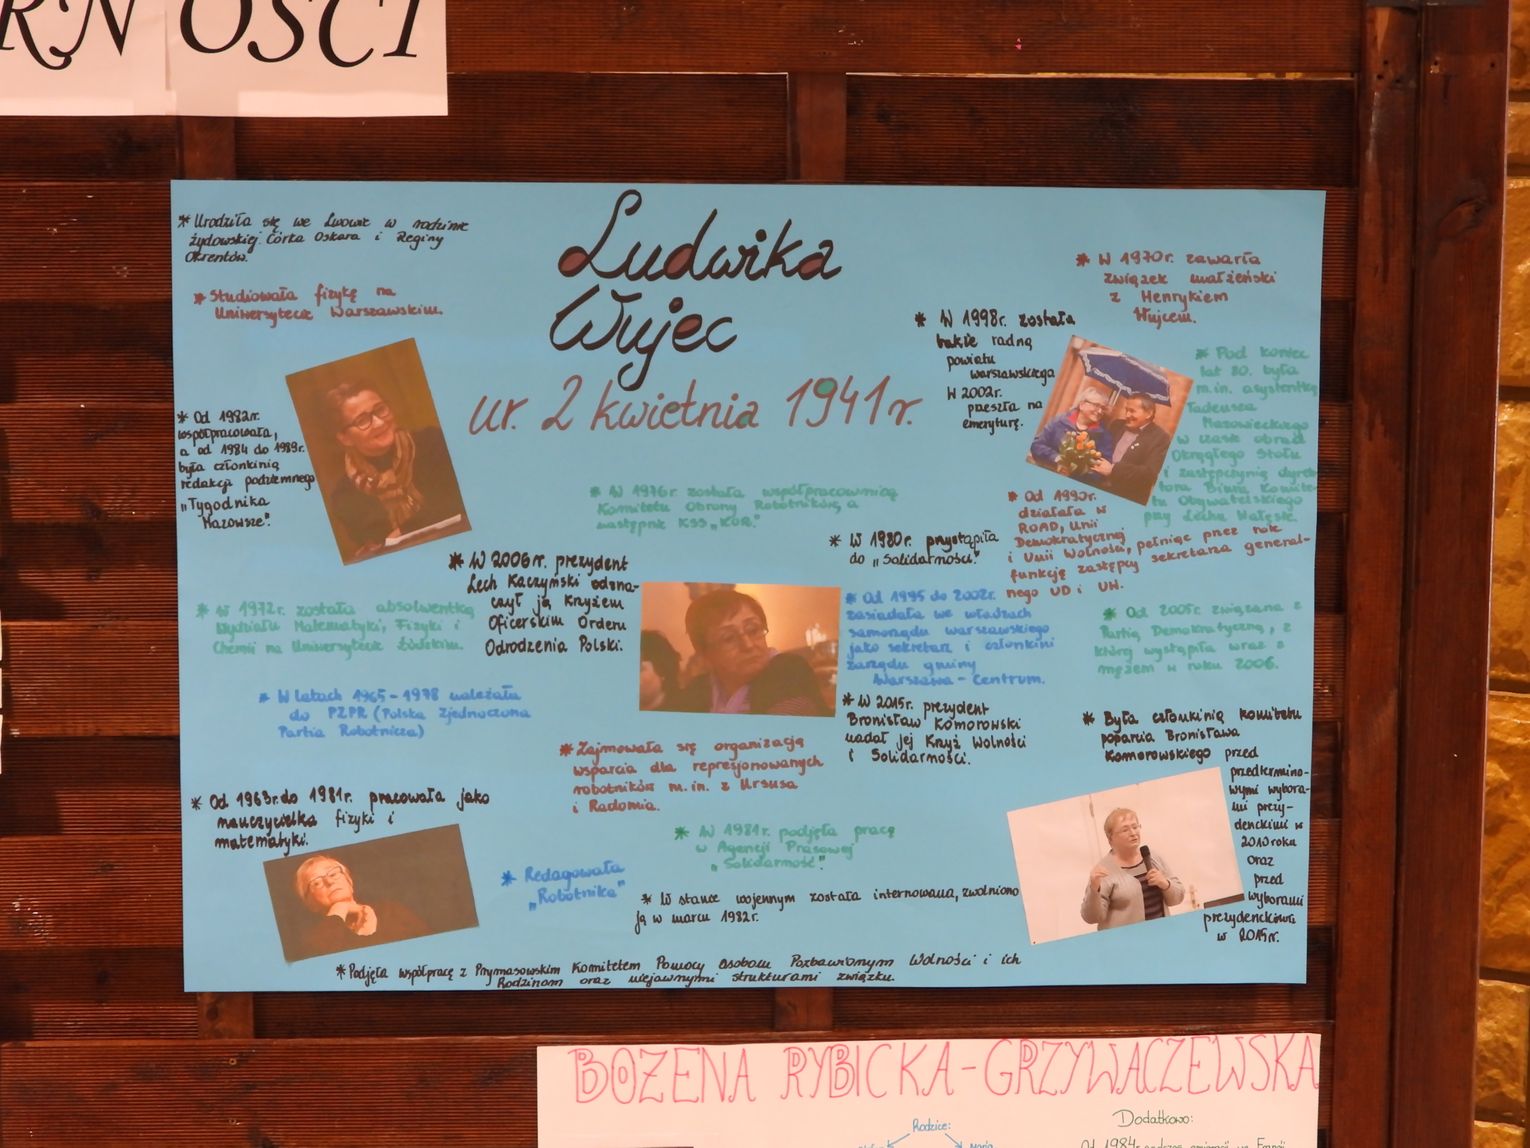 RNOŚCI
Ludwika
Wujec
ur. 2 kwietnia 1941r.
* Urodziła się we Lwowie w rodzinie
żydowskiej. Córka Oskara i Reginy
Okrentów.
* Studiowała fizykę na
Uniwersytecie Warszawskim.
* Od 1982r.
współpracowała,
a od 1984 do 1989r.
była członkinią
redakcji podziemnego
"Tygodnika
Mazowsze".
* W 1972r. została absolwentką
Wydziału Matematyki, Fizyki i
Chemii na Uniwersytecie Łódzkim.
* W latach 1965-1978 należała
do PZPR (Polska Zjednoczona
Partia Robotnicza)
* Od 1963r. do 1981r. pracowała jako
nauczycielka fizyki i
matematyki.
* W 1976r. została współpracownicą
Komitetu Obrony Robotników, a
następnie KSS „KOR."
* W 2006r. prezydent
Lech Kaczyński odzna-
czył ją Krzyżem
Oficerskim Orderu
Odrodzenia Polski.
* Zajmowała się organizacją
wsparcia dla represjonowanych
robotników m.in. z Ursusa
i Radomia.
* W 1981r. podjęła pracę
w Agencji Prasowej
„Solidarność".
* Redagowała
„Robotnika"
* W stanie wojennym została internowana, zwolniono
ją w marcu 1982r.
* Podjęła współpracę z Prymasowskim Komitetem Pomocy Osobom Pozbawionym Wolności i ich
Rodzinom oraz niejawnymi strukturami związku.
* W 1998r. została
także radną
powiatu
warszawskiego
W 2002r.
przeszła na
emeryturę.
* W 1980r. przystąpiła
do „Solidarności".
* Od 1995 do 2002r.
zasiadała we władzach
samorządu warszawskiego
jako sekretarz i członkini
zarządu gminy
Warszawa-Centrum.
* W 2015r. prezydent
Bronisław Komorowski
nadał jej Krzyż Wolności
i Solidarności.
* W 1970r. zawarła
związek małżeński
z Henrykiem
Wujcem.
* Pod koniec
lat 80. była
m.in. asystentką
Tadeusza
Mazowieckiego
w czasie obrad
Okrągłego Stołu
i zastępczynią dyrek
tora Biura Komite-
tu Obywatelskiego
przy Lechu Wałęsie.
* Od 1990r.
działała w
ROAD, Unii
Demokratycznej
i Unii Wolności, pełniąc przez rok
funkcję zastępcy sekretarza general-
nego UD i UW.
* Od 2005r. związana z
Partią Demokratyczną, z
której wystąpiła wraz z
mężem w roku 2006.
* Była członkinią komitetu
poparcia Bronisława
Komorowskiego przed
przedtermino-
wymi wybora-
mi prezy-
denckimi w
2010 roku
oraz
przed
wyborami
prezydenckimi
w 2015r.
BOŻENA RYBICKA-GRZYWACZEWSKA
Rodzice:
Maria
Dodatkowo:
Od 1984r.